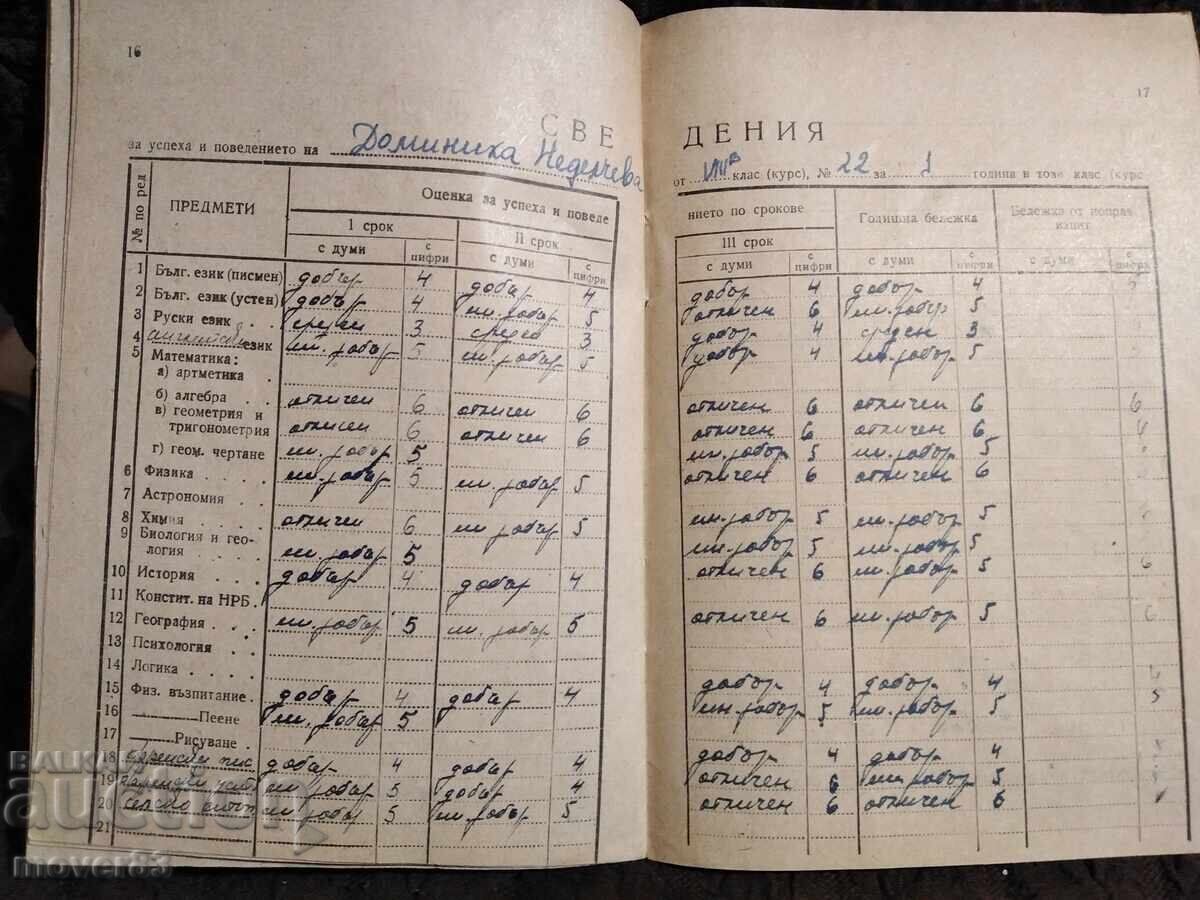 16
СВЕ
за успеха и поведението на Доминика Неделчева
№ по ред
ПРЕДМЕТИ
Оценка за успеха и поведе
I срок
II срок
с думи
с цифри
с думи
с цифри
1 Бълг. език (писмен) добър 4 добър 4
2 Бълг. език (устен) добър 4 мн. добър 5
3 Руски език среден 3 среден 3
4 английски език мн. добър 5 мн. добър 5
5 Математика:
а) артметика
б) алгебра отличен 6 отличен 6
в) геометрия и
тригонометрия отличен 6 отличен 6
г) геом. чертане мн. добър 5
6 Физика мн. добър 5 мн. добър 5
7 Астрономия
8 Химия отличен 6 мн. добър 5
9 Биология и гео-
логия мн. добър 5
10 История добър 4 добър 4
11 Констит. на НРБ.
12 География мн. добър 5 мн. добър 5
13 Психология
14 Логика
15 Физ. възпитание добър 4 добър 4
16 Пеене мн. добър 5
17 Рисуване
18 добър 4 добър 4
19 мн. добър 5 добър 4
20 мн. добър 5 мн. добър 5
21
17
ДЕНИЯ
от VIII в клас (курс), № 22 за 1 година в този клас (курс
нието по срокове
Годишна бележка
Бележка от поправ. изпит
III срок
с думи
с цифри
с думи
с цифри
с думи
с цифри
добър 4 добър 4
отличен 6 мн. добър 5
добър 4 среден 3
добър 4 мн. добър 5
отличен 6 отличен 6
отличен 6 отличен 6
мн. добър 5 мн. добър 5
отличен 6 отличен 6
мн. добър 5 мн. добър 5
мн. добър 5 мн. добър 5
отличен 6 мн. добър 5
отличен 6 мн. добър 5
добър 4 добър 4
мн. добър 5 мн. добър 5
добър 4 добър 4
отличен 6 мн. добър 5
отличен 6 отличен 6
BALKAN
auction
mover83